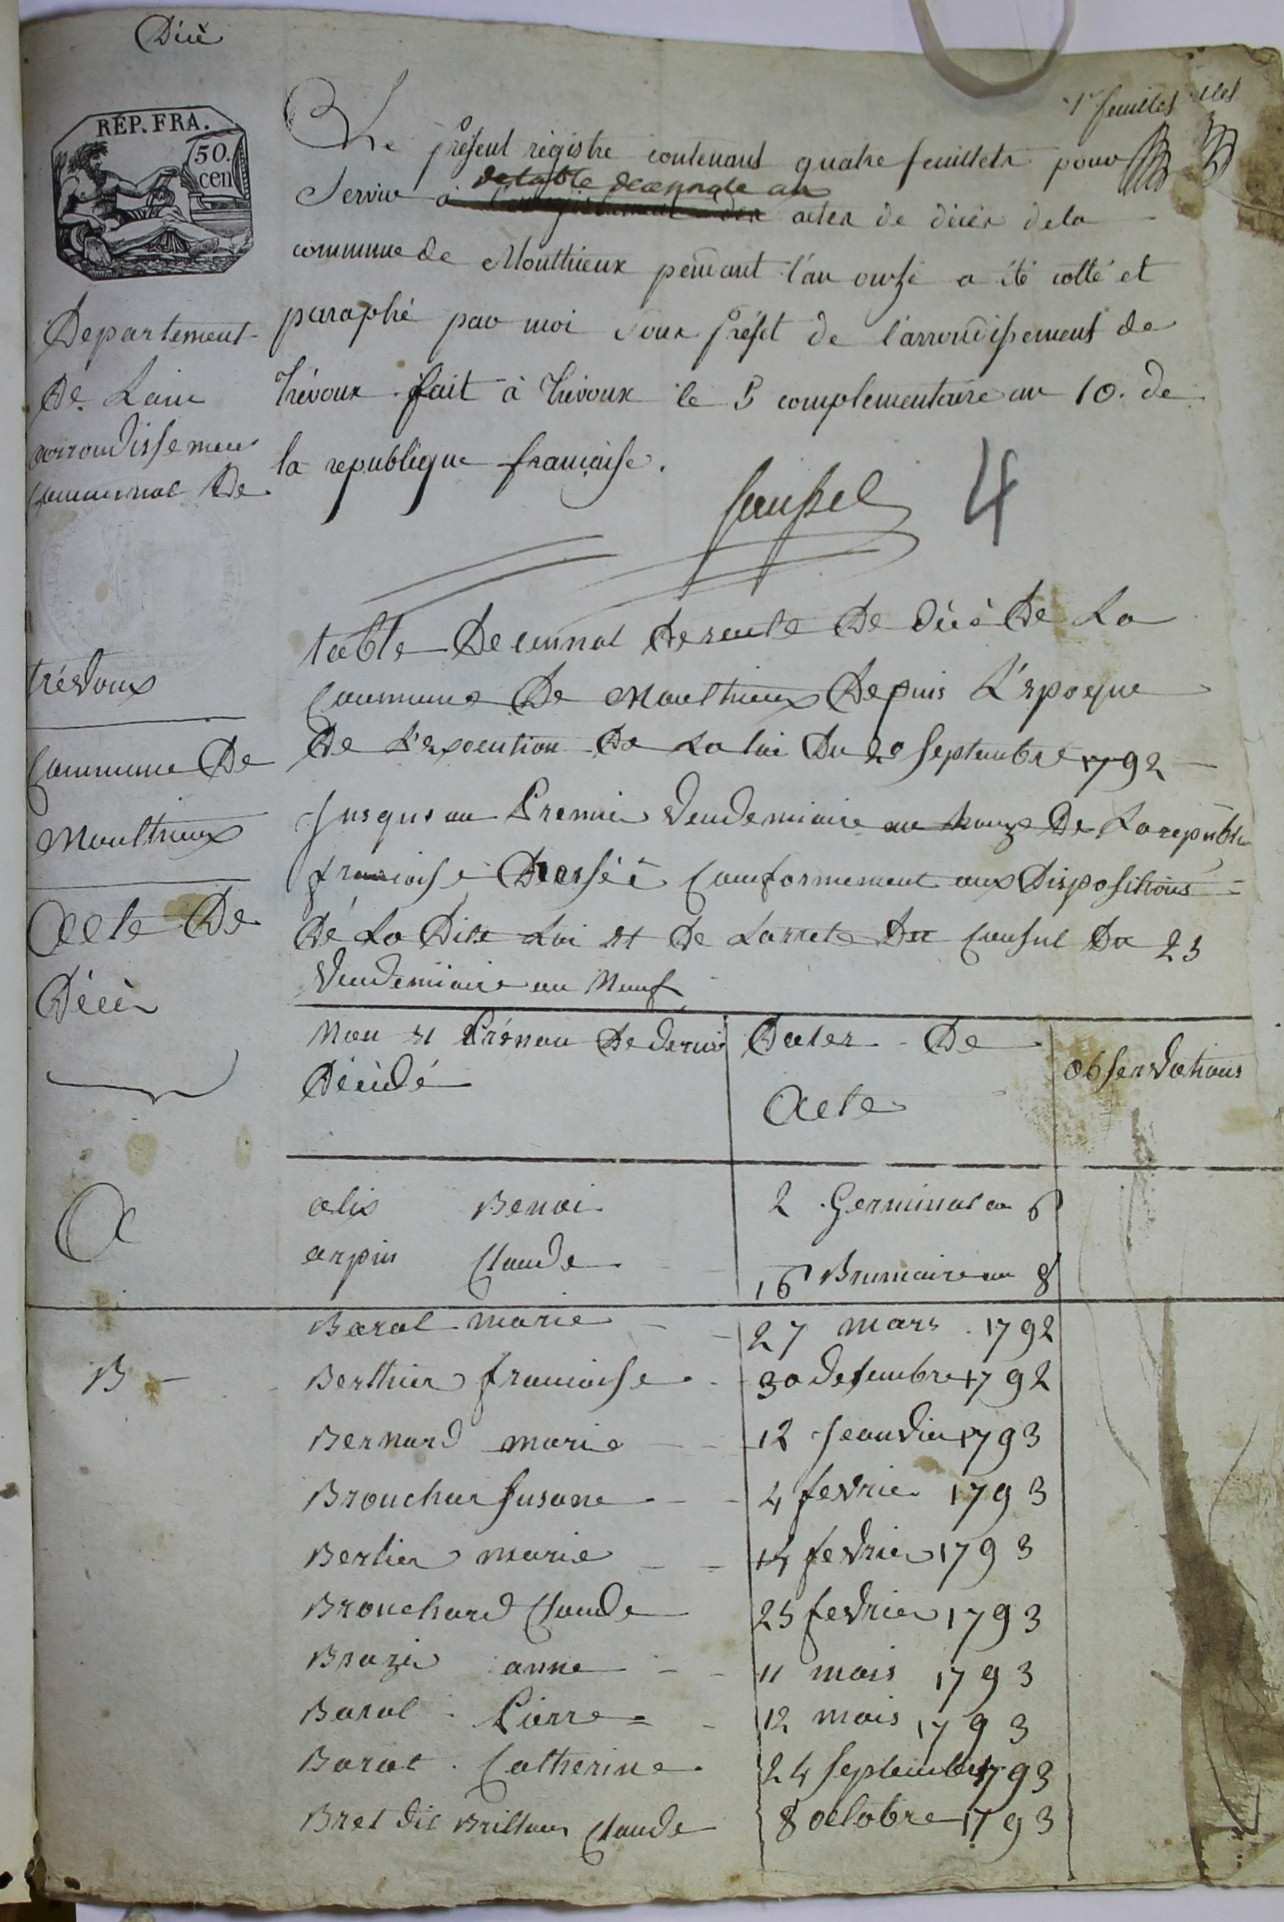 Décè
1er feuillet
RÉP. FRA.
50.
cen
Le présent régistre contenant quatre feuillets pour
Servir à de table décennale au actes de décès de la
commune de Monthieux pendant l'an onze a été cotté et
paraphé par moi Sous préfet de l'arrondissement de
Trévoux fait à Trévoux le 5 complementaire an 10. de
la republique française.
4
Departement
De Lain
arrondissemen
Communal De
trévoux
Commune De
Monthieux
Acte De
Décès
table Decennal De Décè De La
Commune De Monthieux Depuis L'epoque
De L'exocution De La loi Du 20 Septembre 1792
Jusqu'au Premier Vendemiaire an honze De La republi
francoise Dressé Conformement aux Dispositions
De La Dite Loi et De Larrete Du Consul Du 25
Vendemiaire an Neuf
Non et Prénon De
Décédé
Dates De
Acte
observations
A
alix Benoi 2 Germinal an 6
arpin Claude 16 Brumaire an 8
B
Baral marie 27 mars 1792
Berthier francoise 30 desembre 1792
Bernard marie 12 Jeanvier 1793
Brouchar Susane 4 fevrier 1793
Berlier marie 14 fevrier 1793
Brouchard Claude 25 fevrier 1793
Brazier anne 11 mais 1793
Baral Pierre 12 mais 1793
Barat Catherine 24 Septembre 1793
Bret dit Claude 8 octobre 1793